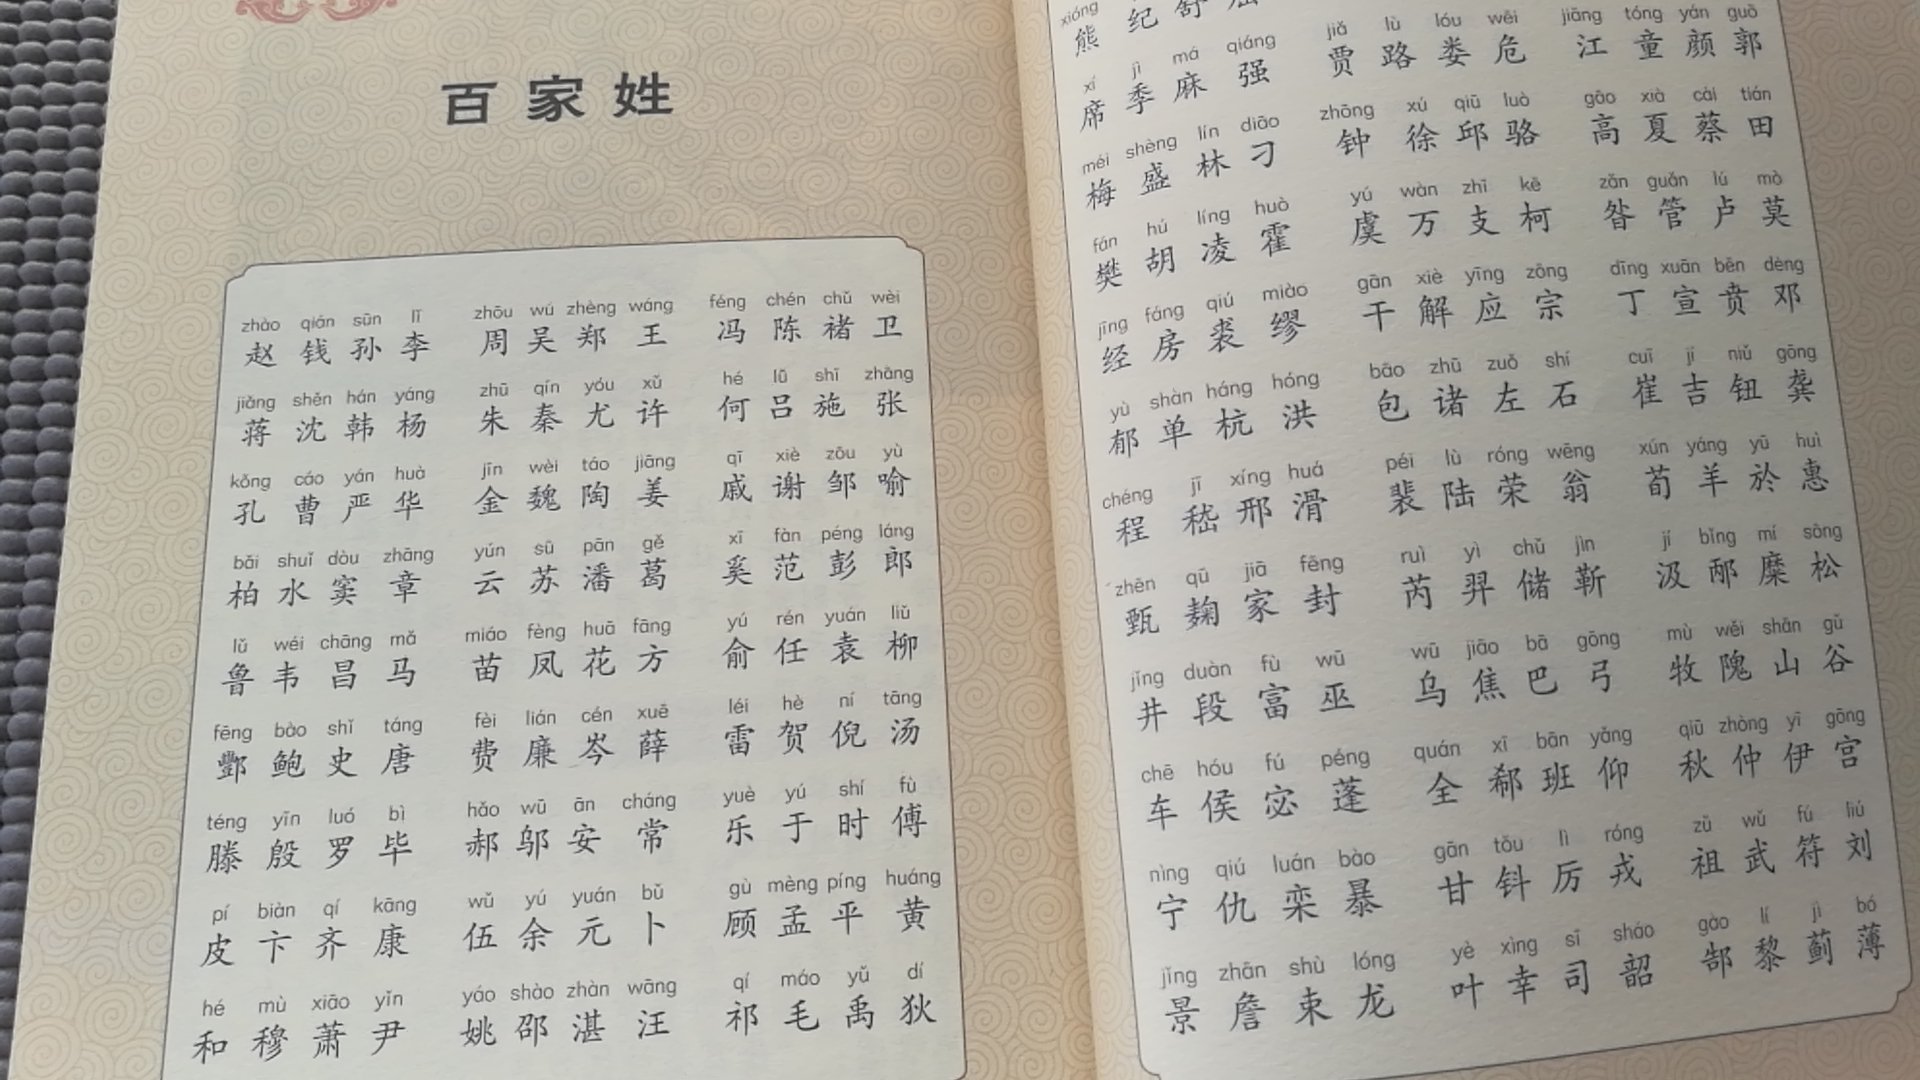 百家姓
zhào qián sūn lǐ zhōu wú zhèng wáng féng chén chǔ wèi
赵钱孙李 周吴郑王 冯陈褚卫
jiǎng shěn hán yáng zhū qín yóu xǔ hé lǚ shī zhāng
蒋沈韩杨 朱秦尤许 何吕施张
kǒng cáo yán huà jīn wèi táo jiāng qī xiè zōu yù
孔曹严华 金魏陶姜 戚谢邹喻
bǎi shuǐ dòu zhāng yún sū pān gě xī fàn péng láng
柏水窦章 云苏潘葛 奚范彭郎
lǔ wéi chāng mǎ miáo fèng huā fāng yú rén yuán liǔ
鲁韦昌马 苗凤花方 俞任袁柳
fēng bào shǐ táng fèi lián cén xuē léi hè ní tāng
酆鲍史唐 费廉岑薛 雷贺倪汤
téng yīn luó bì hǎo wū ān cháng yuè yú shí fù
滕殷罗毕 郝邬安常 乐于时傅
pí biàn qí kāng wǔ yú yuán bǔ gù mèng píng huáng
皮卞齐康 伍余元卜 顾孟平黄
hé mù xiāo yǐn yáo shào zhàn wāng qí máo yǔ dí
和穆萧尹 姚邵湛汪 祁毛禹狄
xióng
熊纪舒
xí jì má qiáng jiǎ lù lóu wēi jiāng tóng yán guō
席季麻强 贾路娄危 江童颜郭
méi shèng lín diāo zhōng xú qiū luò gāo xià cài tián
梅盛林刁 钟徐邱骆 高夏蔡田
fán hú líng huò yú wàn zhī kē zǎn guǎn lú mò
樊胡凌霍 虞万支柯 昝管卢莫
jīng fáng qiú miào gān xiè yīng zōng dīng xuān bēn dèng
经房裘缪 干解应宗 丁宣贲邓
yù shàn háng hóng bāo zhū zuǒ shí cuī jí niǔ gōng
郁单杭洪 包诸左石 崔吉钮龚
chéng jī xíng huá péi lù róng wēng xún yáng yū huì
程嵇邢滑 裴陆荣翁 荀羊於惠
zhēn qū jiā fēng ruì yì chǔ jìn jí bǐng mí sòng
甄麹家封 芮羿储靳 汲邴糜松
jǐng duàn fù wū wū jiāo bā gōng mù wěi shān gǔ
井段富巫 乌焦巴弓 牧隗山谷
chē hóu fú péng quán xī bān yǎng qiū zhòng yī gōng
车侯宓蓬 全郗班仰 秋仲伊宫
nìng qiú luán bào gān tǒu lì róng zǔ wǔ fú liú
宁仇栾暴 甘钭厉戎 祖武符刘
jǐng zhān shù lóng yè xìng sī sháo gào lí jì bó
景詹束龙 叶幸司韶 郜黎蓟薄